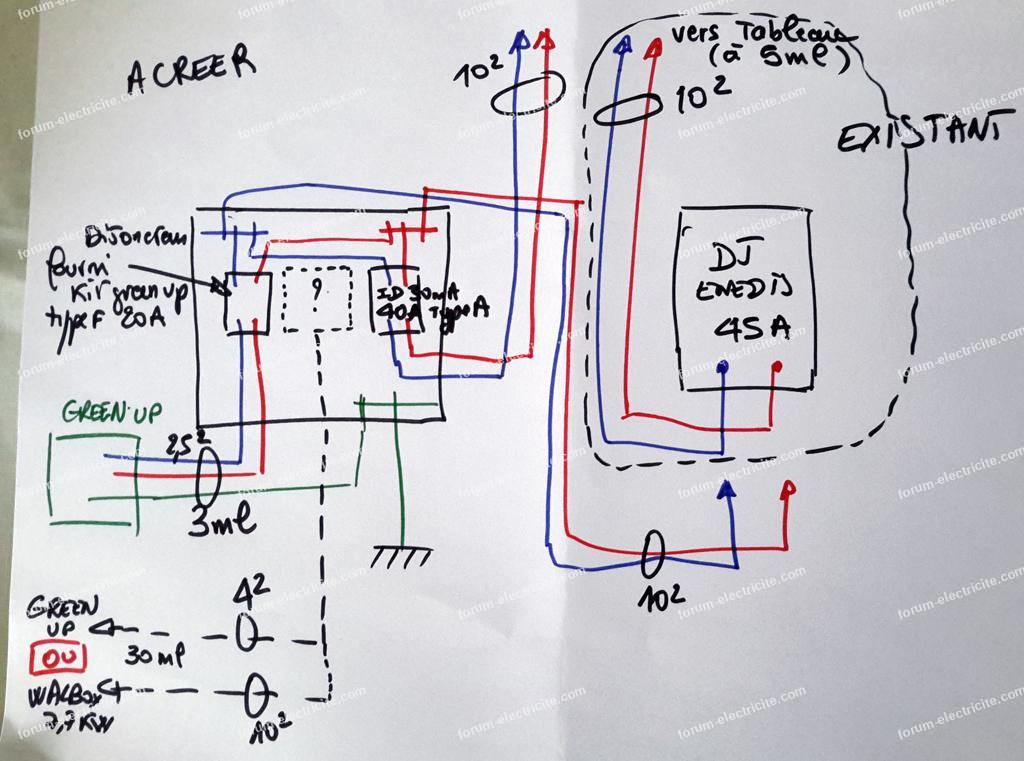 A CREER
10²
vers Tableau
(à 5ml)
10²
EXISTANT
Disjoncteur
fourni
Kit green up
type F 20A
?
ID 30mA
40A Type A
DJ
ENEDIS
45A
GREEN UP
2,5²
3ml
10²
GREEN
UP
4²
30ml
OU
WALBOX
7,7KW
10²
forum-electricite.com